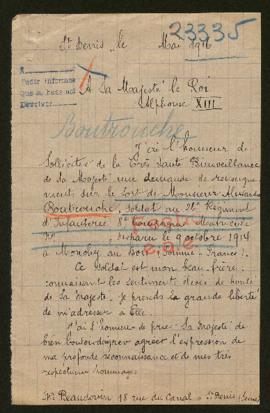 23335
St Denis, le Mai 1916
A Sa Majesté le Roi
Alphonse XIII
Pedir informes
Boutrouche
J'ai l'honneur de
Solliciter de la Très Haute Bienveillance
de Sa Majesté une demande de renseigne
ments sur le sort de Monsieur
Boutrouche, soldat au Régiment
d'Infanterie 8e Compagnie
disparu le 9 octobre 1914
à Monchy au Bois (Somme, France).
Ce soldat est mon beau-frère.
connaissant les sentiments élevés de bonté
de Sa Majesté je prends la grande liberté
de m'adresser à Elle.
J'ai l'honneur de prier Sa Majesté de
bien vouloir agréer l'expression de
ma profonde reconnaissance et de mes très
respectueux hommages.
Beaudovin 18 rue du Canal à St Denis (Seine)